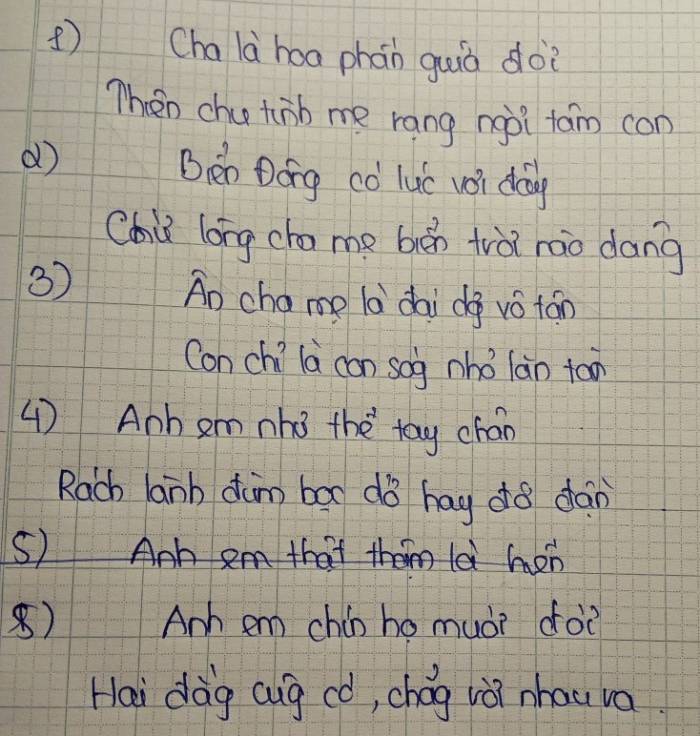 1) Cha là hoa phấn giữa đời
Thiên chu tình mẹ rạng ngời tâm con
2) Biển Đông có lúc vơi đầy
Chứ lòng cha mẹ biển trời nào dang
3) Ân cha mẹ là đại dg vô tận
Con chỉ là con sóg nhỏ lăn tăn
4) Anh em như thể tay chân
Rách lành đùm bọc dở hay đỡ đần
5) Anh em thật thà là hơn
8) Anh em chín họ mười đời
Hai dàg cũg có, chẳg rời nhau ra.